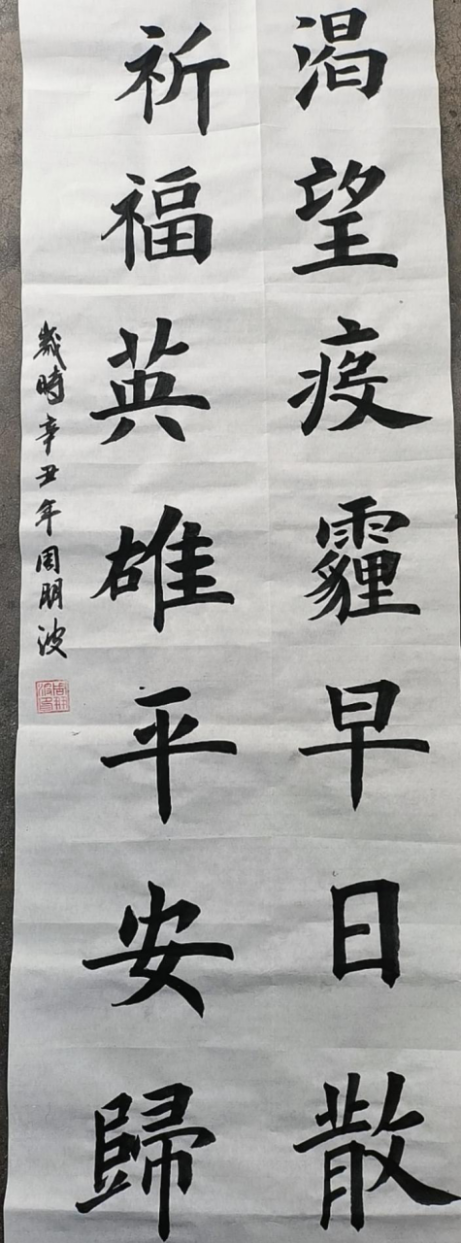 渴望疫霾早日散
祈福英雄平安歸
歲時辛丑年周朋波